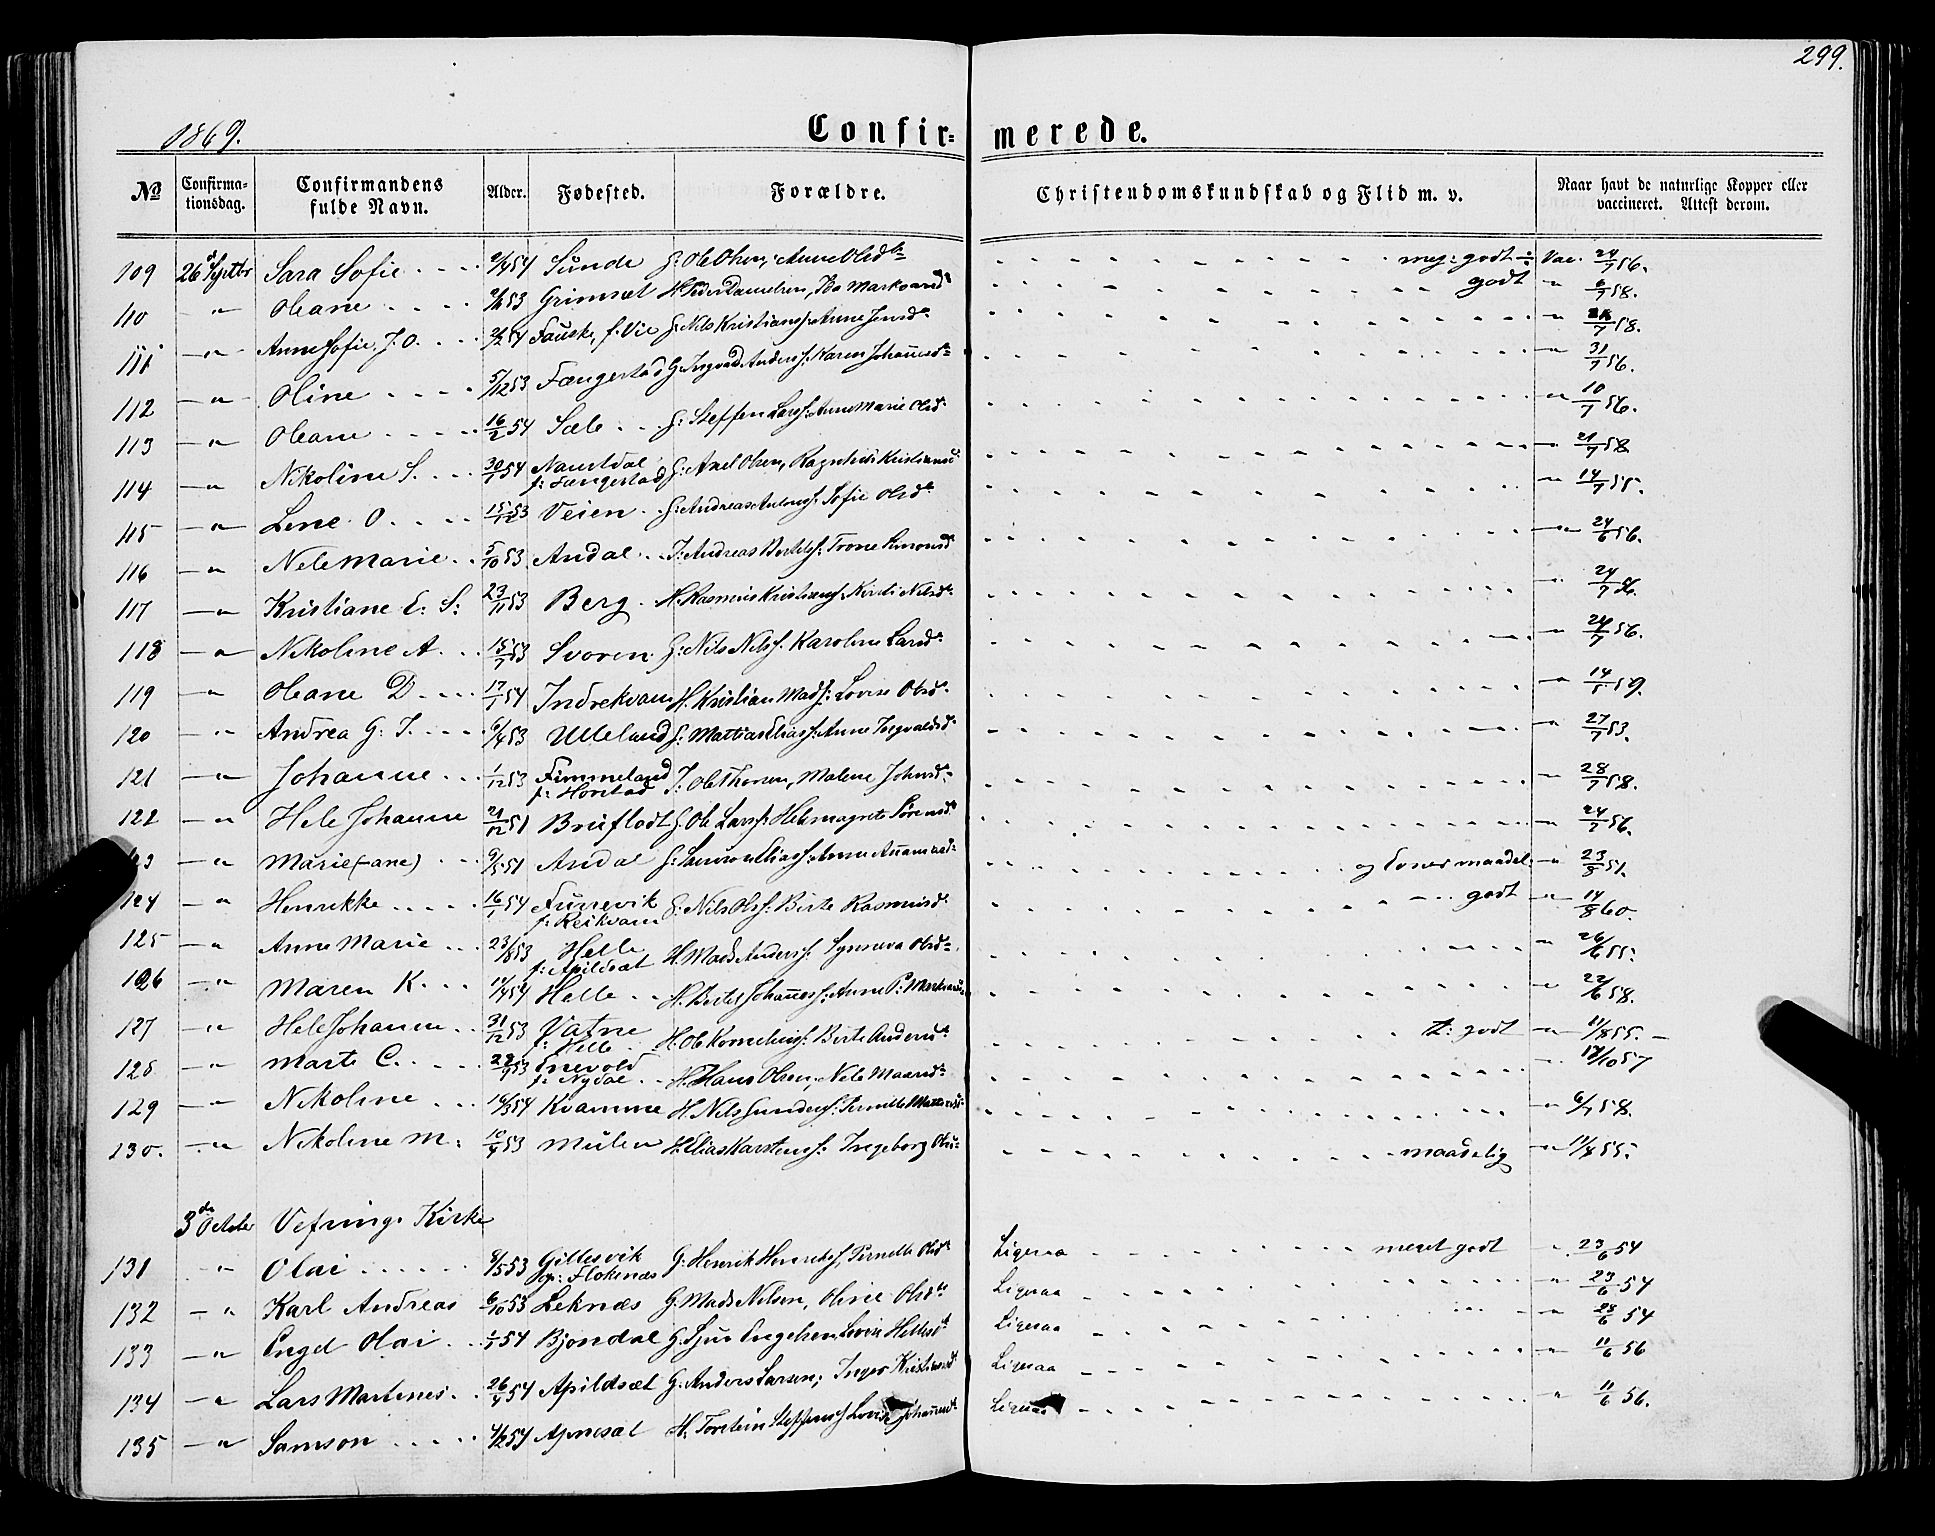 299.
1869.
Confir= merede.
No Confirma=tionsdag. Confirmandens fulde Navn. Alder. Fødested. Forældre. Christendomskundskab og Flid m. v. Naar havt de naturlige Kopper eller vaccineret. Attest derom.
109 26 Septbr Sara Sofie Sunde G: Ole Olsen, Anne Olsdr meg: godt Vac. 24/7 56.
110 " Oleane 53 Grimset H. Peder Danielsen, godt " 6/7 58.
111 " Anne Sofie J. O. 54 Fauske, f. Vie G: Nils Kristians: Anne Jensdr " /7 58.
112 " Oline 5/12 53 Fængestad G: Ingvald Anders: Karen Johannesdr " 31/7 56.
113 " Oleane 16/2 54 Sæle G: Steffen Larss: Anne Marie Olsd " 10/7 56.
114 " Nikoline S. 30/7 54 Naustdal f: Fængestad G: Axel Olsen, Ragnhild Kristiansd " 21/7 58
115 " Lene O. 15/12 53 Veien G: Andreas Antons: Sofie Olsd " 14/7 55.
116 " Nele Marie 5/10 53 Andal J: Andreas Bertels: Trone Simonsd " 24/6 56.
117 " Kristiane E. S: 23/11 53 Berg H. Rasmus Kristians: Kirsti Nilsdr " 24/7 56.
118 " Nikoline A. 15/7 53 Svoren G: Nils Nilss. Karoline Larsdr " 24/7 56.
119 " Oleane D 17/1 54 Indrekvam H. Kristian Mads: Lovise Olsdr " 14/1 59.
120 " Andrea G. J. 6/4 53 Ulleland G: Mattias Eliass: Anne Ingvaldsd " 27/7 53.
121 " Johanne 1/12 53 Fimmeland f: Horstad J: Ole Thorsen, Malene Johnsdr " 28/7 58.
122 " Hele Johanne 21/12 51 Bruflodt G. Ole Larss: Hele Magrete Sørensdr " 24/7 56.
123 " Marie (-ane) 9/5 51 Andal G: Eliass: Anne og Evner maadel: " 23/8 51.
124 " Henrikke 16/1 54 Funevik f: Reikvam G: Nils Olss: Berte Rasmusd godt " 14/8 60.
125 " Anne Marie 23/8 53 Helle f: Apildsæt H. Mads Anders: Synneva Olsdr " 26/6 55.
126 " Maren K. 54 Helle H. Bertel Johannes: Anne P: " 22/6 58.
127 " Hele Johanne 31/12 53 Vatne f: Helle H. Ole Kornelius: Berte Andersdr t: godt " 11/8 55.
128 " Marte C. 53 Enevold f: Nydal H. Hans Olsen, Nele Maansdr " /10 57
129 " Nikoline 16/3 54 Kvamme H. Nils Gunders: Pernille " 6/7 58.
130. " Nikoline M. 10/9 53 Mulen H. Elias Karstens: Ingeborg Olsd maadelig " 11/8 55.
3de October Vefrings Kirke
131 " Olai 8/5 53 Gillesvik op: Flokenæs G. Henrik Henriks, Pernille Olsd Ligesaa meget godt " 23/6 54
132 " Karl Andreas 6/10 53 Leknæs G. Mads Nilsen, Oline Olsdr Ligesaa " 23/6 54
133 " Engel Olai 54 Bjondal G. Sjur Engelsen, Lovise Hellesdr Ligesaa " 28/6 54
134 " Lars Martines 26/4 54 Apildsæt G. Anders Larsen, Inger Kristiansd Ligesaa " 11/6 56
135 " Samson 4/2 54 Apnesæt H. Torstein Steffens Lovise Johannesdr Ligesaa " 11/6 56.